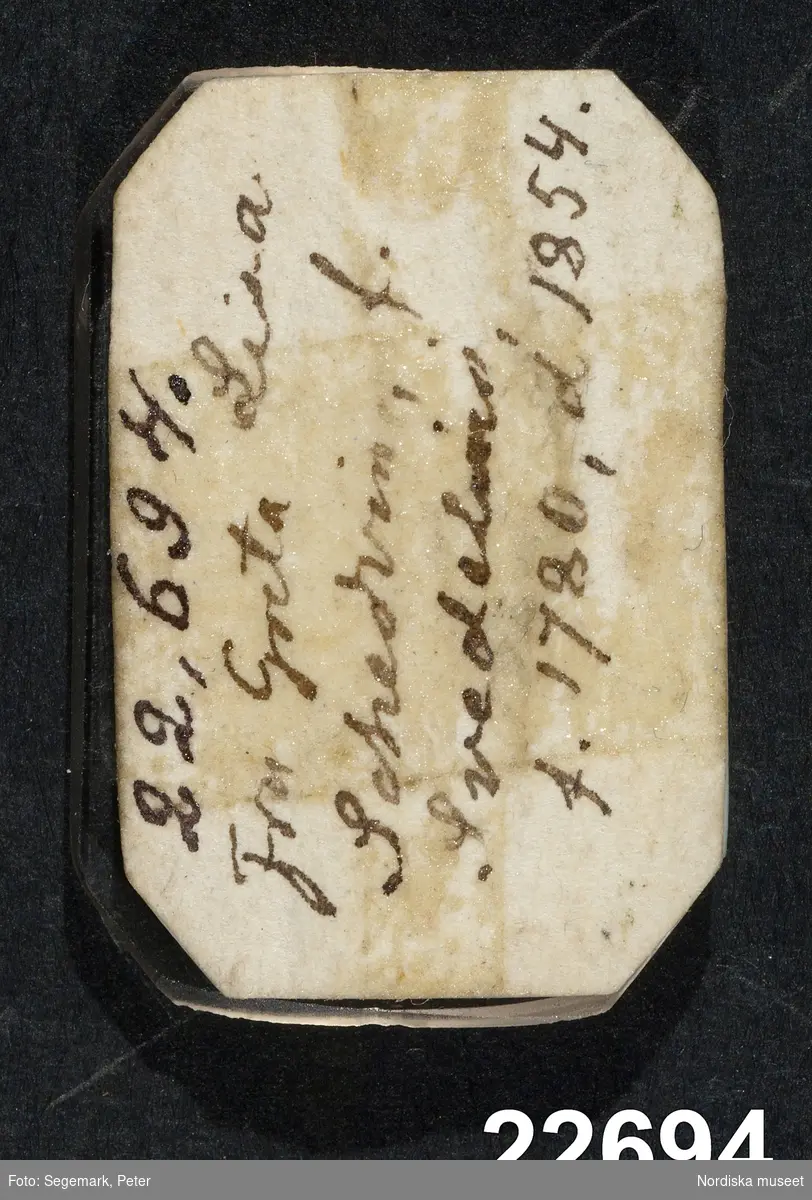 22,694.
Fru Greta Lisa
Schedvin, f.
Svedelius
f. 1780, d 1854.
22694
Foto: Segemark, Peter
Nordiska museet